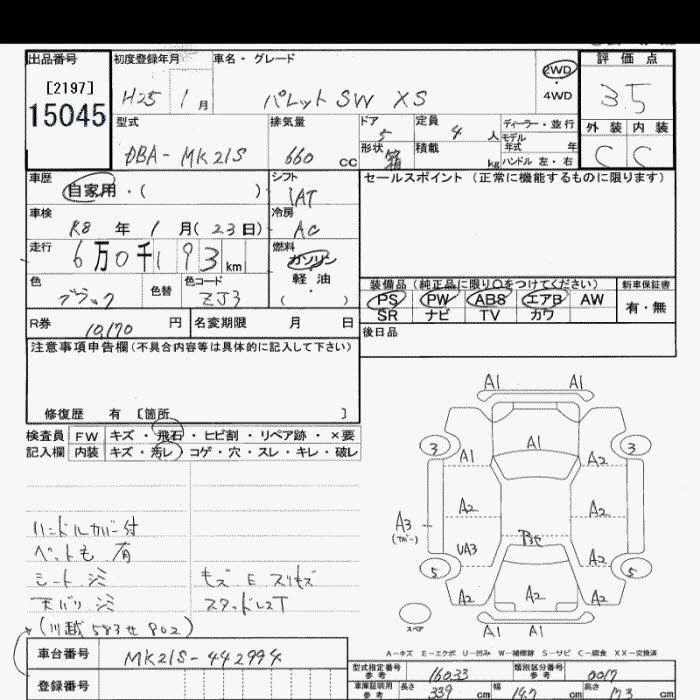 出品番号 初度登録年月 車名・グレード 評価点
[2197] 2WD
15045 H25 1月 パレット SW XS ・4WD 3.5
型式 排気量 ドア 定員 ディーラー・並行 外装 内装
DBA-MK21S 660 cc 5 4人 モデル年式 年 C C
形状 箱 積載 kg ハンドル 左・右
車歴 シフト セールスポイント (正常に機能するものに限ります)
自家用・( ) IAT
車検 冷房
R8年 1月(23日) AC
走行 燃料
6万0千193km ガソリン
色 色替 色コード 軽油
ブラック ZJ3 ( )
装備品(純正品に限り○をつけてください) 新車保証書
PS PW ABS エアB AW 有・無
SR ナビ TV カワ
R券 10,170円 名変期限 月 日
後日品
注意事項申告欄(不具合内容等は具体的に記入して下さい)
修復歴 有 [箇所 ]
検査員 FW キズ・飛石・ヒビ割・リペア跡・×要
記入欄 内装 キズ・汚レ・コゲ・穴・スレ・キレ・破レ
A1 A1
3 A1 3
A1 A2
A2 A2
A3
(カバー)
UA3 A2
5 5
A2 A2 A2
スペア
A1 A1
ハンドルカバー付
ペット毛 有
シート シミ モズ E スリキズ
天バリ シミ スタッドレスT
(川越 583せ802)
A-キズ E-エクボ U-凹み W-補修跡 S-サビ C-腐食 XX-交換済
車台番号 MK21S-442994
型式指定番号 参考 16033 類別区分番号 参考 0017
登録番号
車庫証明用 参考 長さ 339 cm 幅 147 cm 高さ 173 cm